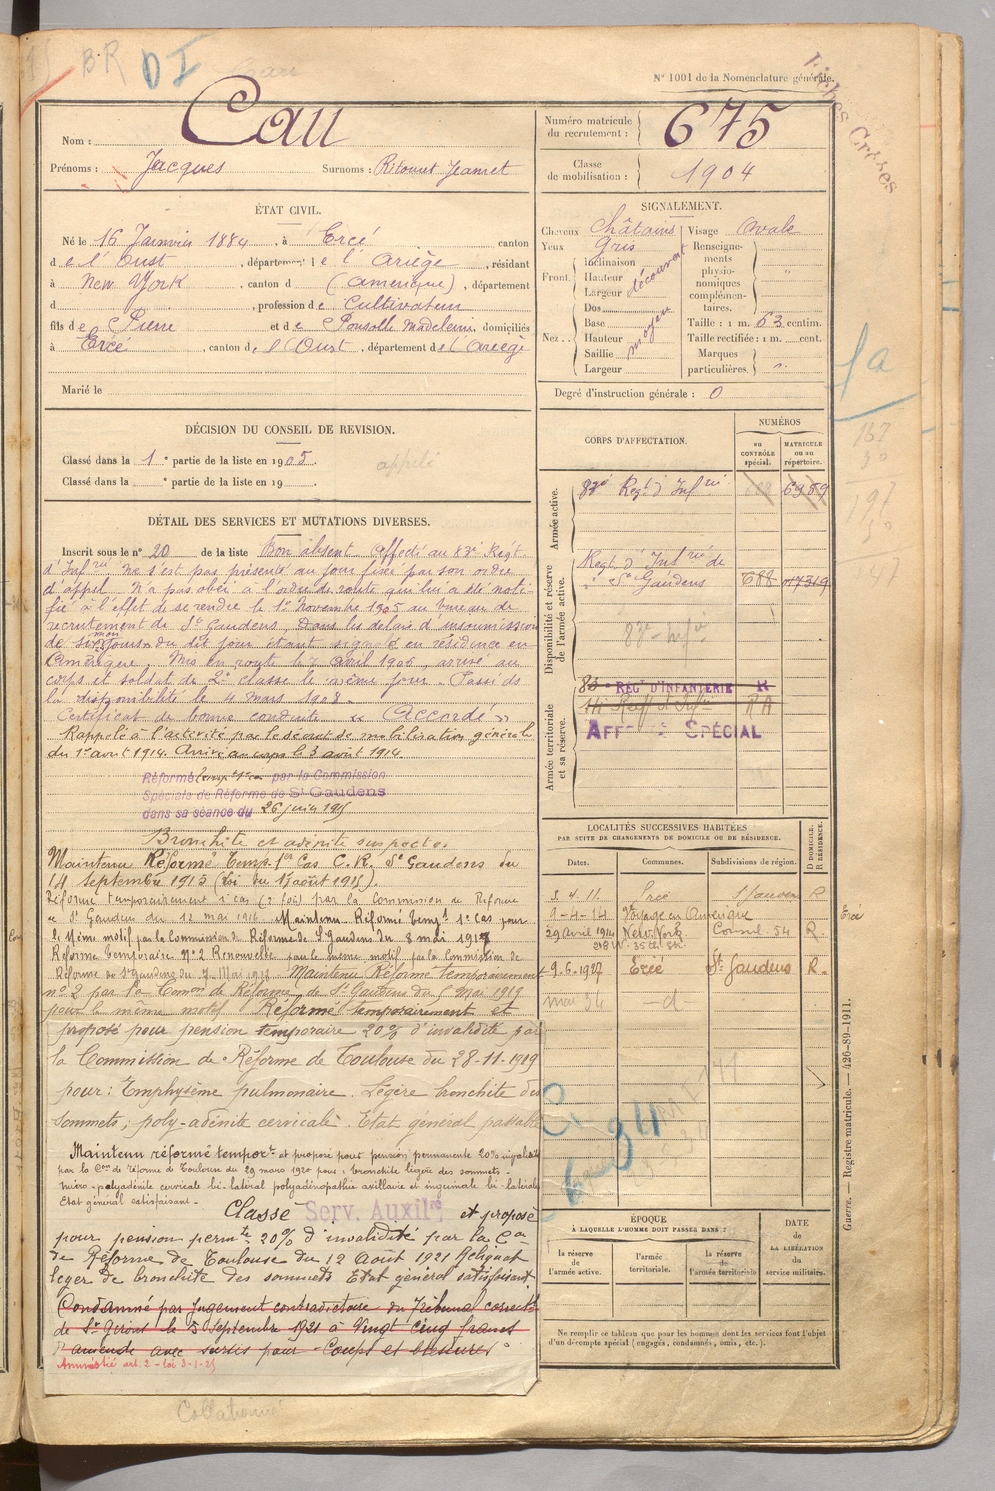 BR DI
N° 1001 de la Nomenclature générale.
Fiches Croisées
Nom : Cau
Prénoms : Jacques Surnoms : Ritounet Jeanret
Numéro matricule du recrutement : 675
Classe de mobilisation : 1904
ÉTAT CIVIL.
Né le 16 Janvier 1884, à Ercé canton
de l'Oust, département de l'Ariège, résidant
à New York, canton d (Amérique), département
d , profession de Cultivateur
fils de Pierre et de Ponsolle Madeleine, domiciliés
à Ercé, canton de l'Oust, département de l'Ariège
Marié le
SIGNALEMENT.
Cheveux Châtains Visage Ovale
Yeux Gris
Front. Inclinaison Hauteur Largeur découvert
Nez. Dos Base Hauteur Saillie Largeur moyen
Renseignements physionomiques complémentaires. "
Taille : 1 m. 63 centim.
Taille rectifiée : 1 m. cent.
Marques particulières. "
Degré d'instruction générale : 0
DÉCISION DU CONSEIL DE REVISION.
Classé dans la 1e partie de la liste en 1905.
appelé
Classé dans la e partie de la liste en 19
DÉTAIL DES SERVICES ET MUTATIONS DIVERSES.
Inscrit sous le n° 20 de la liste Bon absent Affecté au 83e Régt
d'Infrie Ne s'est pas présenté au jour fixé par son ordre
d'appel N'a pas obéi à l'ordre de route qui lui a été noti-
fié à l'effet de se rendre le 1er Novembre 1905 au bureau de
recrutement de St Gaudens Dans les délais d'insoumission
de six mois du dit jour étant signalé en résidence en
Amérique. Mis en route le 7 avril 1906, arrivé au
corps et soldat de 2e classe le même jour. Passé ds
la disponibilité le 4 mars 1908.
Certificat de bonne conduite « Accordé »
Rappelé à l'activité par le décret de mobilisation générale
du 1er aout 1914. Arrivé au corps le 3 août 1914.
Réformé temp. 1er cas par la Commission
Spéciale de Réforme de St Gaudens
dans sa séance du 26 juin 1915
Bronchite et adénite suspecte.
Maintenu Réformé Temp. 1er Cas C.R. St Gaudens du
14 septembre 1915 (Loi du 17 août 1915).
Réformé temporairement 1er cas (2e fois) par la Commission de Réforme
de St Gaudens du 12 mai 1916 Maintenu Réformé Tempt 1er cas pour
le même motif par la Commission de Réforme de St Gaudens du 8 mai 1917
Réforme Temporaire N°2 Renouvelée pour le même motif par la Commission de
Réforme de St Gaudens du 7 Mai 1918 Maintenu Réformé temporairement
n°2 par la Comon de Réforme de St Gaudens du 5 Mai 1919
pour le même motif Réformé temporairement et
proposé pour pension temporaire 20% d'invalidité par
la Commission de Réforme de Toulouse du 28-11-1919
pour : Emphysème pulmonaire. Légère bronchite des
sommets, poly-adénite cervicale. Etat général passable
Maintenu réformé temport et proposé pour pension permanente 20% invalidité
par la Con de réforme de Toulouse du 29 mars 1920 pour : bronchite légère des sommets.
micro-polyadénite cervicale bi-latéral polyadénopathie axillaire et inguinale bi-latérale
Etat général satisfaisant.
Classé Serv. Auxilre et proposé
pour pension permte 20% d'invalidité par la Con
de Réforme de Toulouse du 12 Août 1921 Reliquat
leger de bronchite des sommets Etat général satisfaisant.
Condamné par Jugement contradictoire du Tribunal correctl
de St Girons le 5 Septembre 1921 à Vingt cinq francs
d'amende avec sursis pour "Coups et blessures"
Amnistié art. 2 - loi 3-1-25
Collationné
CORPS D'AFFECTATION.
NUMÉROS
au CONTRÔLE spécial. MATRICULE ou au répertoire.
Armée active.
83e Regt d'Infrie 6989
Disponibilité et réserve de l'armée active.
Regt d'Infrie de
St Gaudens 688 017319
83e Infie
Armée territoriale et sa réserve.
83 REGt D'INFANTERIE R
AFF SPÉCIAL
LOCALITÉS SUCCESSIVES HABITÉES
PAR SUITE DE CHANGEMENTS DE DOMICILE OU DE RÉSIDENCE.
Dates. Communes. Subdivisions de région. D DOMICILE. R RÉSIDENCE.
3.4.11. Ercé St Gaudens R
9-4-14 Voyage en Amérique Ercé
29 Avril 1914 New-York Consul 54 R.
218 W. 35th Str.
9.6.1927 Ercé St Gaudens R.
mai 34 -d
ÉPOQUE
À LAQUELLE L'HOMME DOIT PASSER DANS :
la réserve de l'armée active. l'armée territoriale. la réserve de l'armée territoriale
DATE DE LA LIBÉRATION du service militaire.
Ne remplir ce tableau que pour les hommes dont les services font l'objet
d'un décompte spécial (engagés, condamnés, omis, etc.).
Guerre. — Registre matricule. — 426-89-1911.